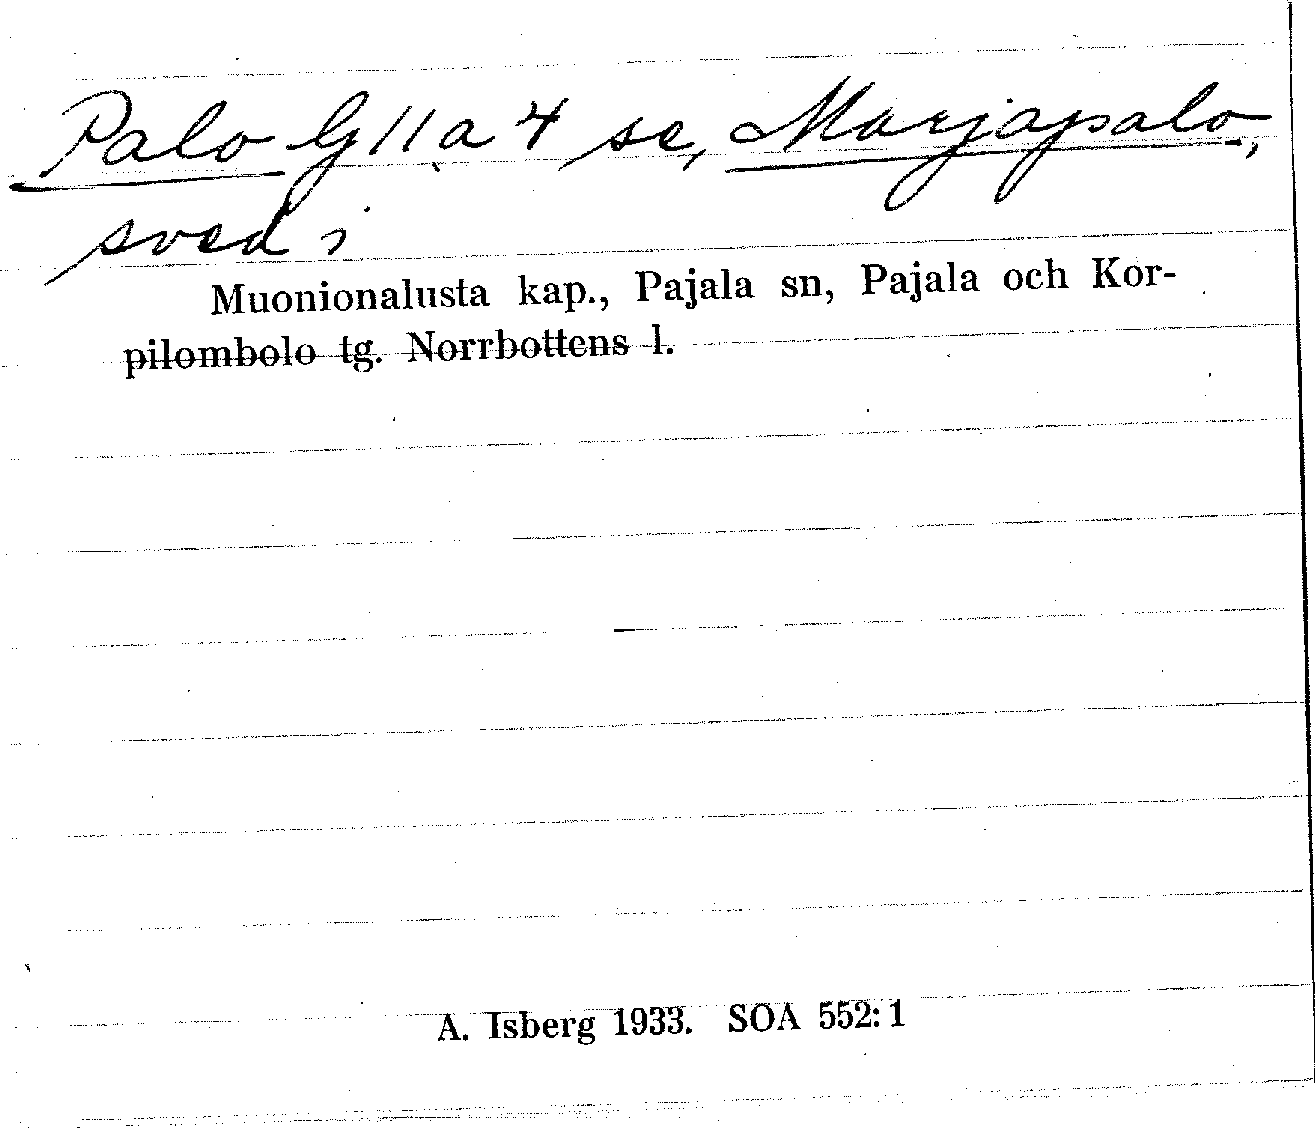 Palo G 11 a 4 se, Marjapalo,
sved i
Muonionalusta kap., Pajala sn, Pajala och Kor-
pilombolo tg. Norrbottens l.
A. Isberg 1933. SOA 552:1